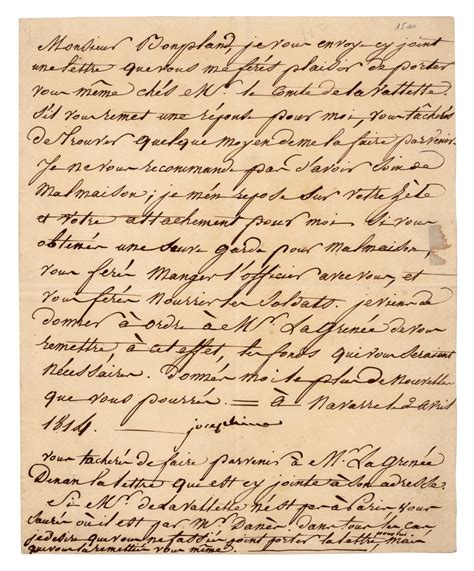 Monsieur Bonpland, je vous envoye cy joint
une lettre que vous me ferés plaisir de porter
vous même chés Mr. le Comte de la Vallette
S'il vous remet une réponse pour moi, vous tâcherés
de trouver quelque moyen de me la faire parvenir.
Je ne vous recommande pas d'avoir soin de
Malmaison; je m'en repose sur votre zèle
et votre attachement pour moi. Si vous
obtenés une sauve garde pour Malmaison,
vous ferés manger l'officier avec vous, et
vous ferés nourrir les soldats. je viens de
donner à ordre à Mr. La Grenée de vous
remettre, à cet effet, les fonds qui vous seraient
nécéssaires. Donnés moi le plus de nouvelles
que vous pourrés. = à Navarre le 2 avril
1814. josephine
vous tacherés de faire parvenir à Mr. La Grenée
la lettre qui est cy jointe à son adresse.
Si Mr. de la Vallette n'est pas à Paris, vous
saurés où il est par Mr. dans tous les cas,
je desire que vous ne fassiés point porter la lettre, mais
que vous la remettiés vous même.